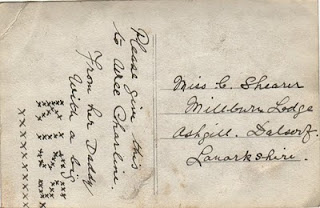 Please give this
to Wee Charline.
From her Daddy
With a big
Miss C. Shearer
Millburn Lodge
Ashgill. Dalserf.
Lanarkshire.